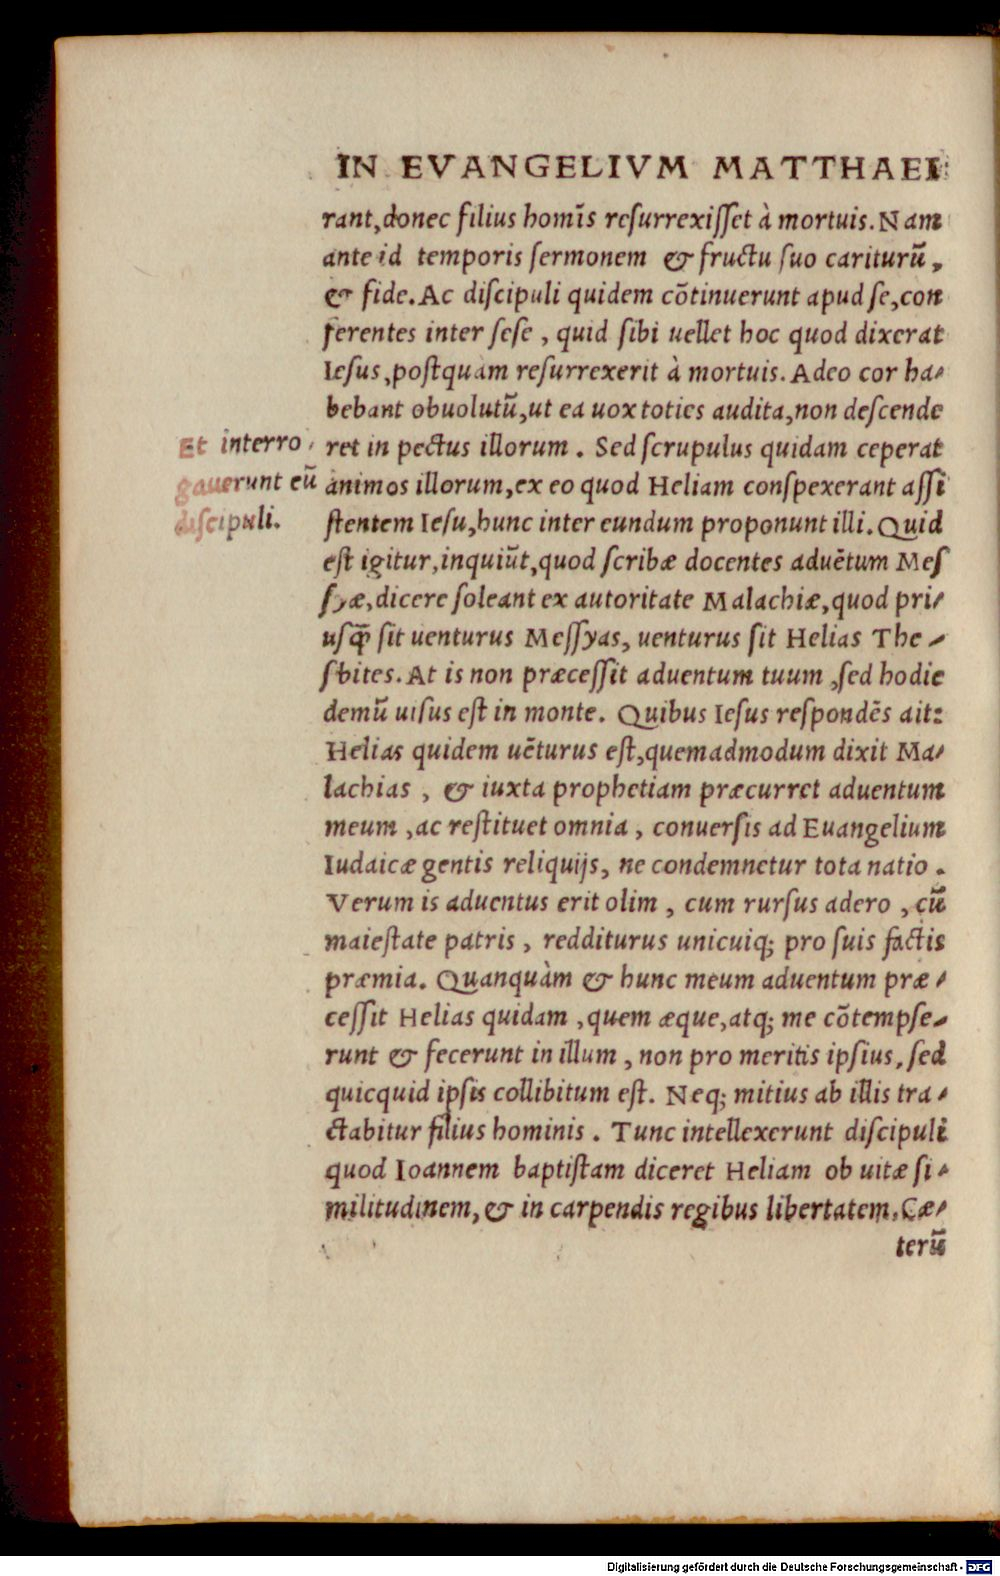 IN EVANGELIVM MATTHAEI
rant, donec filius homīs resurrexisset à mortuis. Nam
ante id temporis sermonem & fructu suo cariturū,
& fide. Ac discipuli quidem cōtinuerunt apud se, con
ferentes inter sese, quid sibi uellet hoc quod dixerat
Iesus, postquàm resurrexerit à mortuis. Adeo cor ha-
bebant obuolutū, ut ea uox toties audita, non descende
Et interro-
gauerunt eū
discipuli.
ret in pectus illorum. Sed scrupulus quidam ceperat
animos illorum, ex eo quod Heliam conspexerant assi
stentem Iesu, hunc inter eundum proponunt illi. Quid
est igitur, inquiūt, quod scribæ docentes aduētum Mes
syæ, dicere soleant ex autoritate Malachiæ, quod pri-
usq̄ sit uenturus Messyas, uenturus sit Helias The-
sbites. At is non præcessit aduentum tuum, sed hodie
demū uisus est in monte. Quibus Iesus respondēs ait:
Helias quidem uēturus est, quemadmodum dixit Ma-
lachias, & iuxta prophetiam præcurret aduentum
meum, ac restituet omnia, conuersis ad Euangelium
Iudaicæ gentis reliquijs, ne condemnetur tota natio.
Verum is aduentus erit olim, cum rursus adero, cū
maiestate patris, redditurus unicuiq; pro suis factis
præmia. Quanquàm & hunc meum aduentum præ-
cessit Helias quidam, quem æque, atq; me cōtempse-
runt & fecerunt in illum, non pro meritis ipsius, sed
quicquid ipsis collibitum est. Neq; mitius ab illis tra-
ctabitur filius hominis. Tunc intellexerunt discipuli
quod Ioannem baptistam diceret Heliam ob uitæ si-
militudinem, & in carpendis regibus libertatem. Cæ-
terū
Digitalisierung gefördert durch die Deutsche Forschungsgemeinschaft - DFG